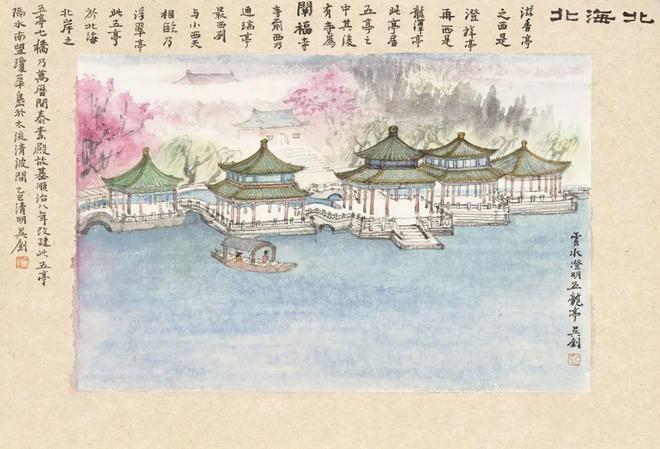 北海北
滋香亭
之西是
澄祥亭
再西是
龍澤亭
此亭居
五亭之
中其後
有寺為
闡福寺
寺前西乃
通瑞亭
最西列
与小西天
相臨乃
浮翠亭
此五亭
於北海
北岸之
五亭七橋乃萬曆間泰素殿故基順治八年改建此五亭
隔水南望瓊華島於太液清波間乙巳清明吳劍
雲水澄明五龍亭吳劍